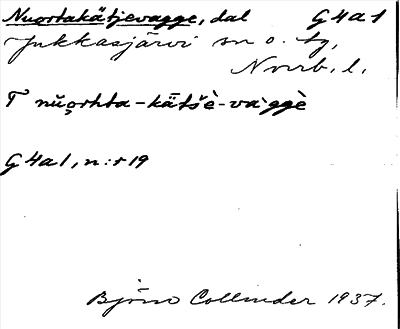 Nuortakätjevagge, dal G4a1
Jukkasjärvi sn o. tg,
Nvrrb. l.
T nŭo̧rhta-kätšè-vàggè
G4a1, n:r 19
Björn Collinder 1937.